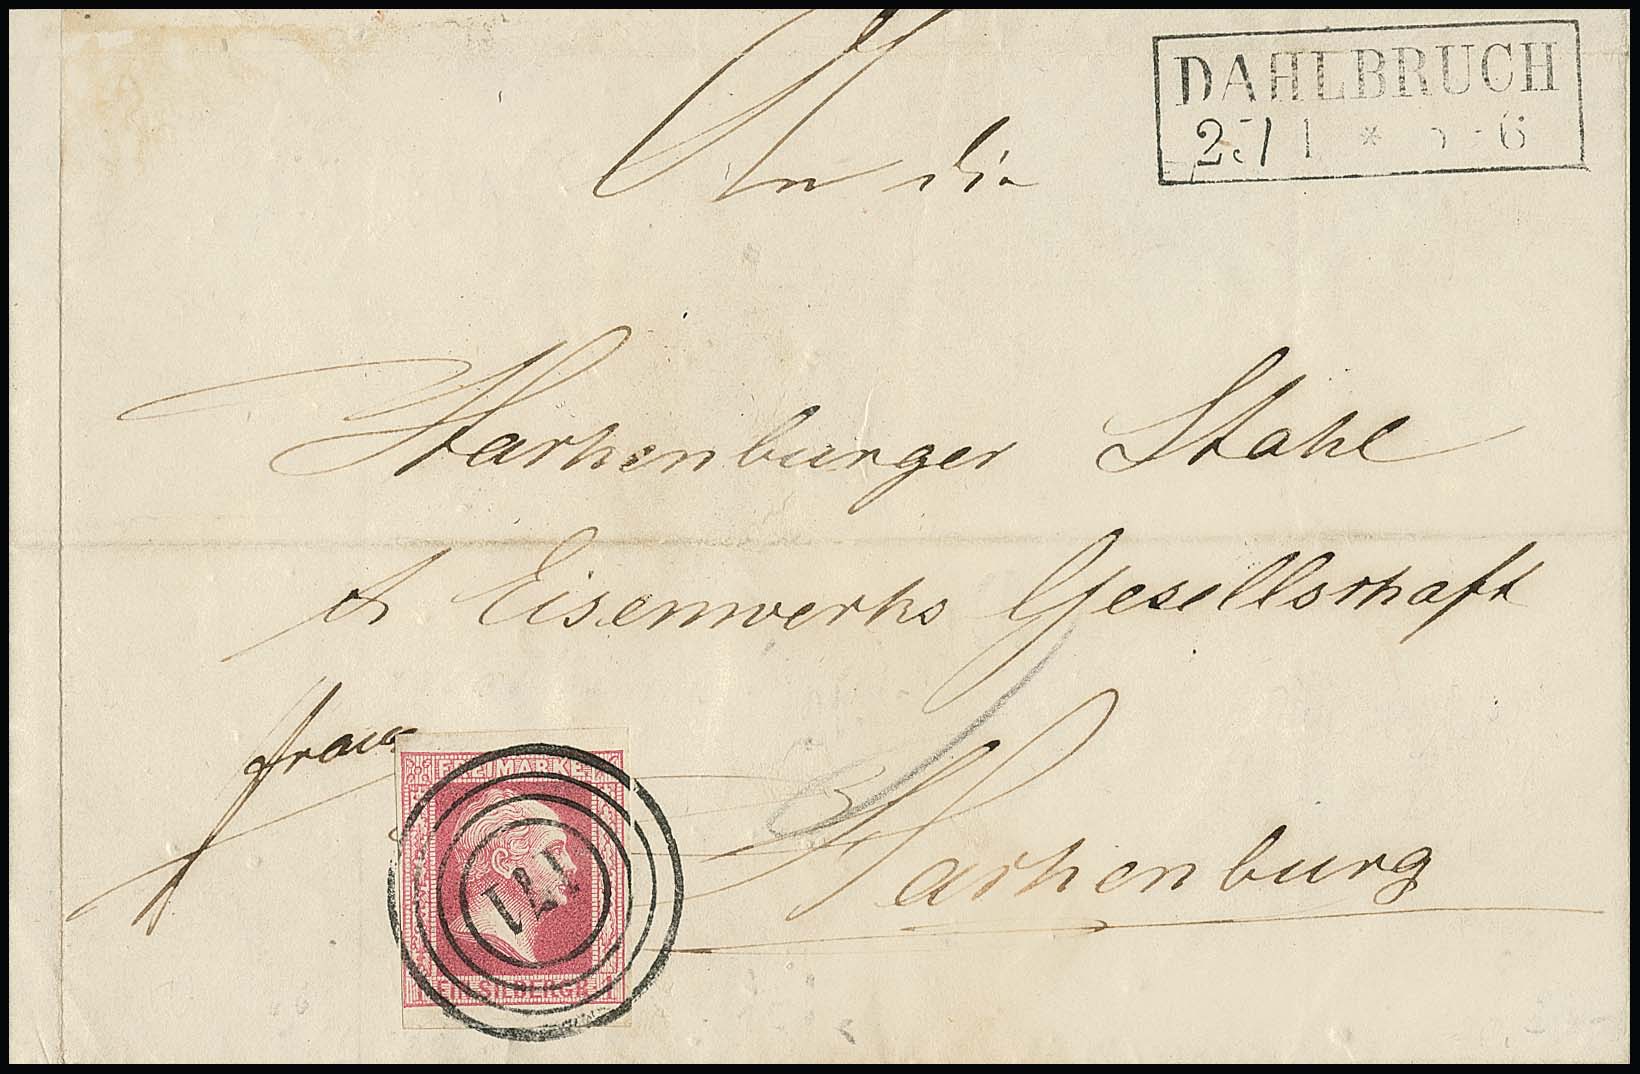 DAHLBRUCH
25/1 * 5-6
An die
Harkenburger Stahl
& Eisenwerks Gesellschaft
franco
Harkenburg
FREIMARKE
EIN SILBERGR.